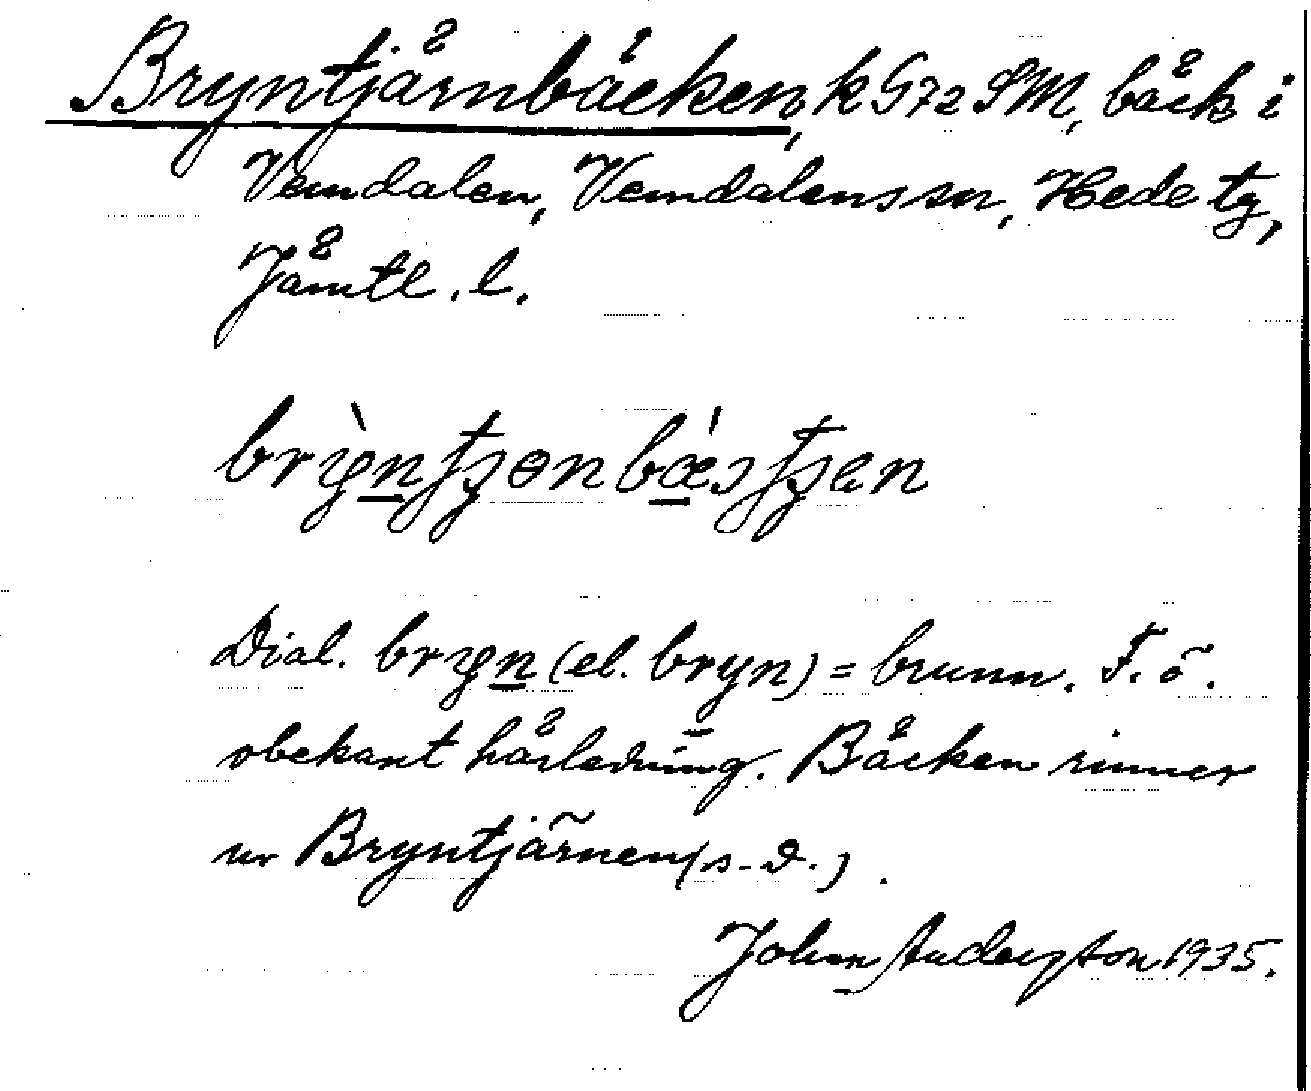 Bryntjärnbäcken, k G72 SM, bäck i
Vemdalen, Vemdalens sn, Hede tg,
Jämtl. l.
Dial. bryn (el. bryn) = brunn. F. ö.
obekant härledning. Bäcken rinner
ur Bryntjärnen (s. d.).
John Anderzson 1935.